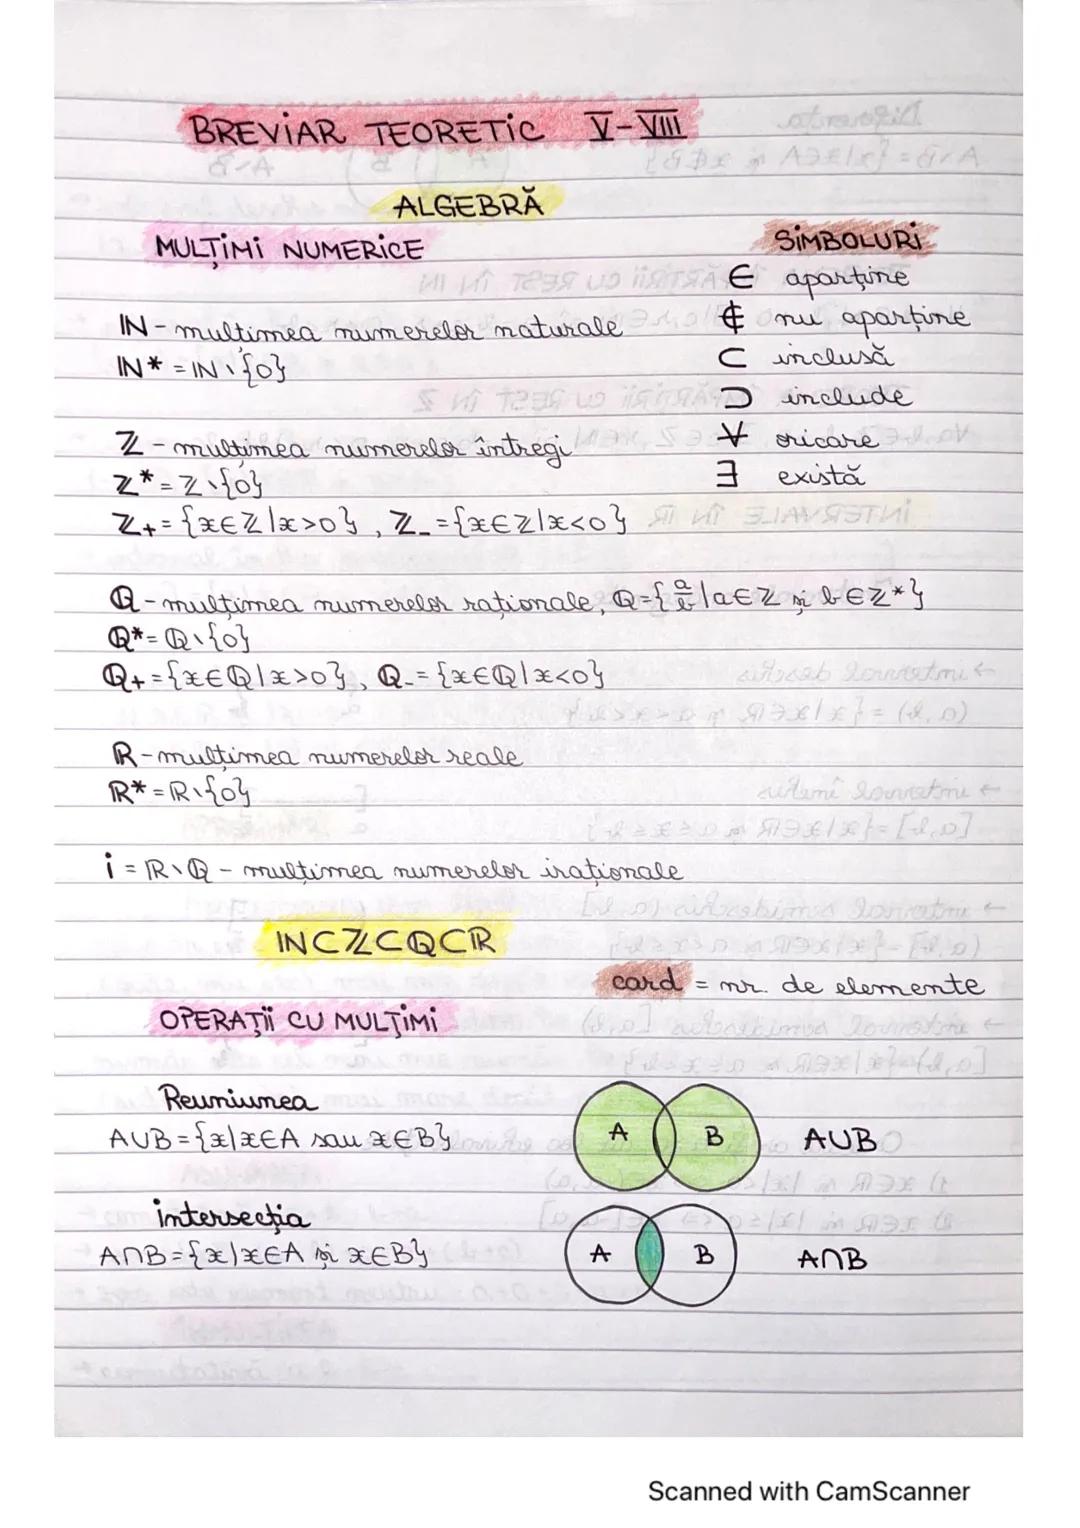 BREVIAR TEORETIC V-VIII
ALGEBRĂ
MULȚIMI NUMERICE
SIMBOLURI
∈ aparține
∉ nu aparține
⊂ inclusă
⊃ include
∀ oricare
∃ există
ℕ - mulțimea numerelor naturale
ℕ* = ℕ \ {0}
ℤ - mulțimea numerelor întregi
ℤ* = ℤ \ {0}
ℤ+ = {x∈ℤ | x>0}, ℤ_ = {x∈ℤ | x<0}
ℚ - mulțimea numerelor raționale, ℚ = {a/b | a∈ℤ și b∈ℤ*}
ℚ* = ℚ \ {0}
ℚ+ = {x∈ℚ | x>0}, ℚ- = {x∈ℚ | x<0}
ℝ - mulțimea numerelor reale
ℝ* = ℝ \ {0}
i = ℝ \ ℚ - mulțimea numerelor iraționale
ℕ⊂ℤ⊂ℚ⊂ℝ
card = nr. de elemente
OPERAȚII CU MULȚIMI
Reuniunea
A∪B = {x | x∈A sau x∈B}
A B A∪B
intersecția
A∩B = {x | x∈A și x∈B}
A B A∩B
Scanned with CamScanner